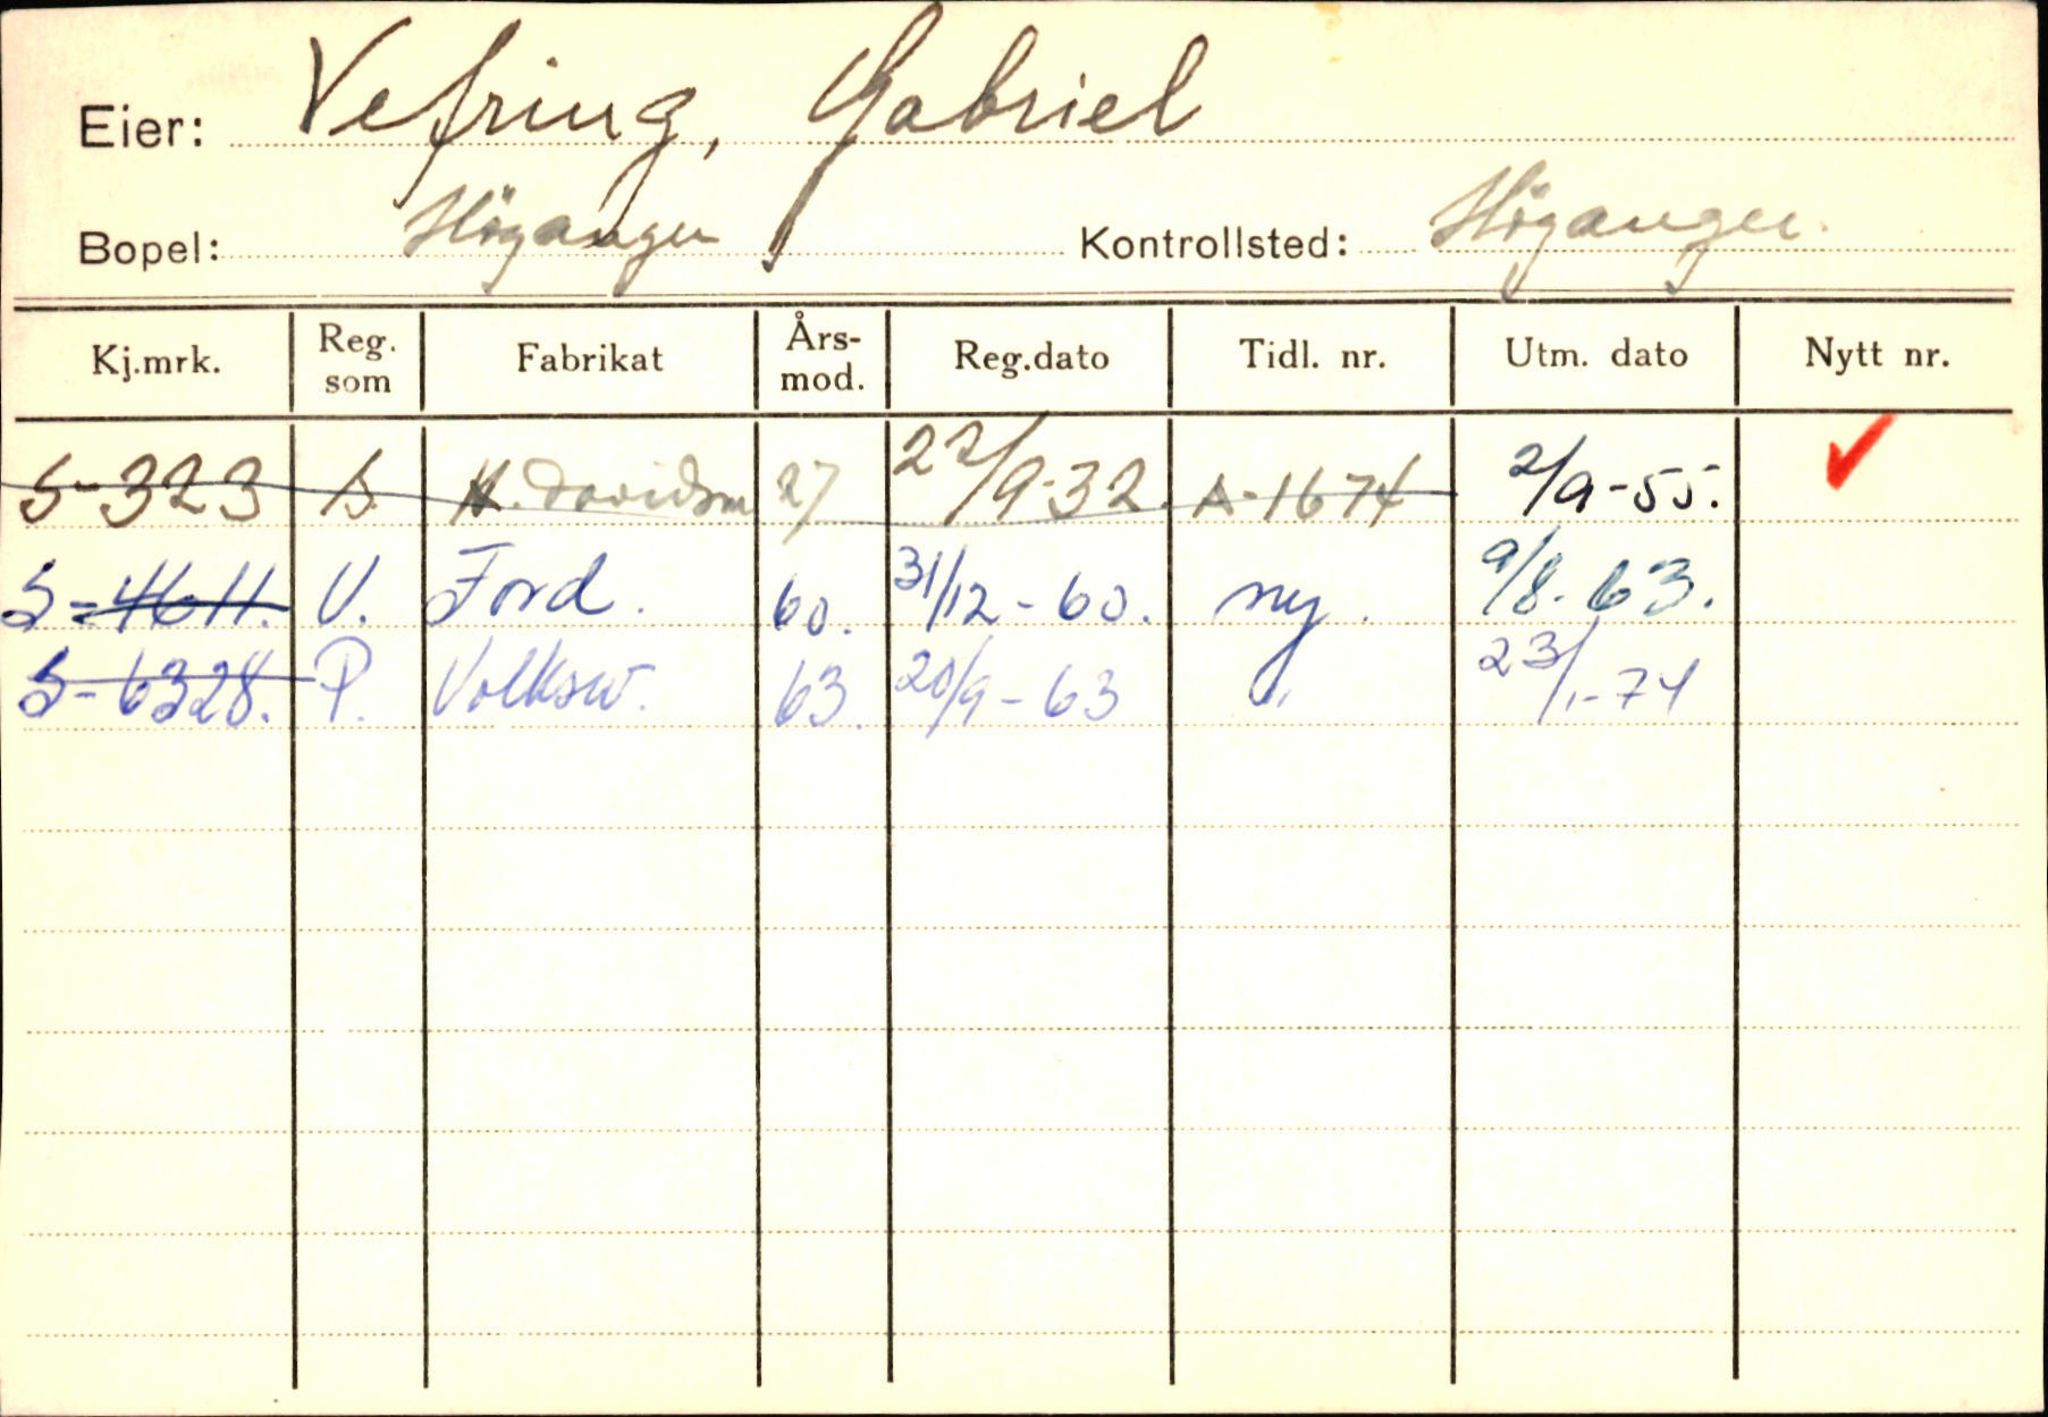 Eier: Vefring, Gabriel
Bopel: Höyanger Kontrollsted: Höyanger.
Kj.mrk. Reg. som Fabrikat Års-mod. Reg.dato Tidl. nr. Utm. dato Nytt nr.
S-323 S. H. Davidson 27 22/9-32. A-1674 2/9-55. ✓
S-4611. V. Ford. 60. 31/12-60. ny. 9/8-63.
S-6328. P. Volksw. 63. 20/9-63 " 23/1-74